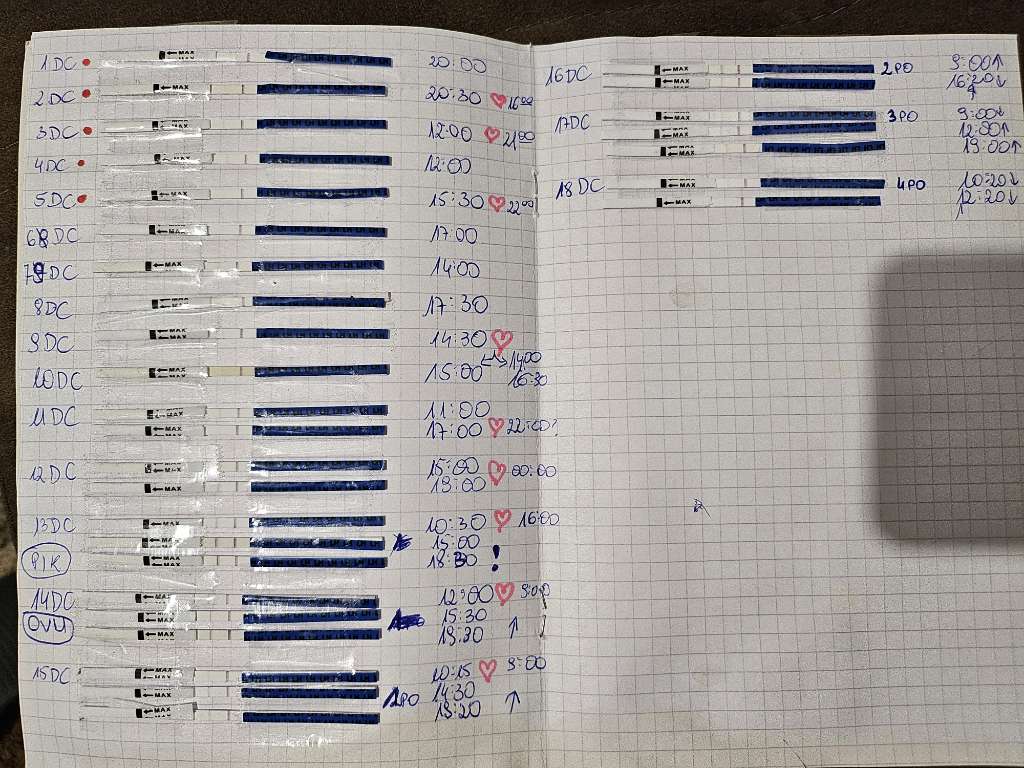 1DC MAX 20:00
2DC MAX 20:30 16:00
3DC MAX 12:00 21:00
4DC 12:00
5DC MAX 15:30 22:00
6DC MAX 17:00
7DC MAX 14:00
8DC MAX 17:30
9DC MAX 14:30
14:00
10DC MAX 15:00 16:30
11DC MAX 11:00
MAX 17:00 22:00?
12DC MAX 15:00 00:00
MAX 19:00
13DC MAX 10:30 16:00
MAX 15:00
PIK MAX 18:30 !
14DC MAX 12:00 9:00
OVU MAX 15:30
MAX 19:30 ↑
15DC MAX 10:15 9:00
MAX 1PO 14:30
MAX 19:20 ↑
16DC MAX 2PO 9:00↑
MAX 16:20↓
17DC MAX 3PO 9:00↓
MAX 12:00↑
MAX 19:00↑
18DC MAX 4PO 10:20↓
MAX 12:20↓